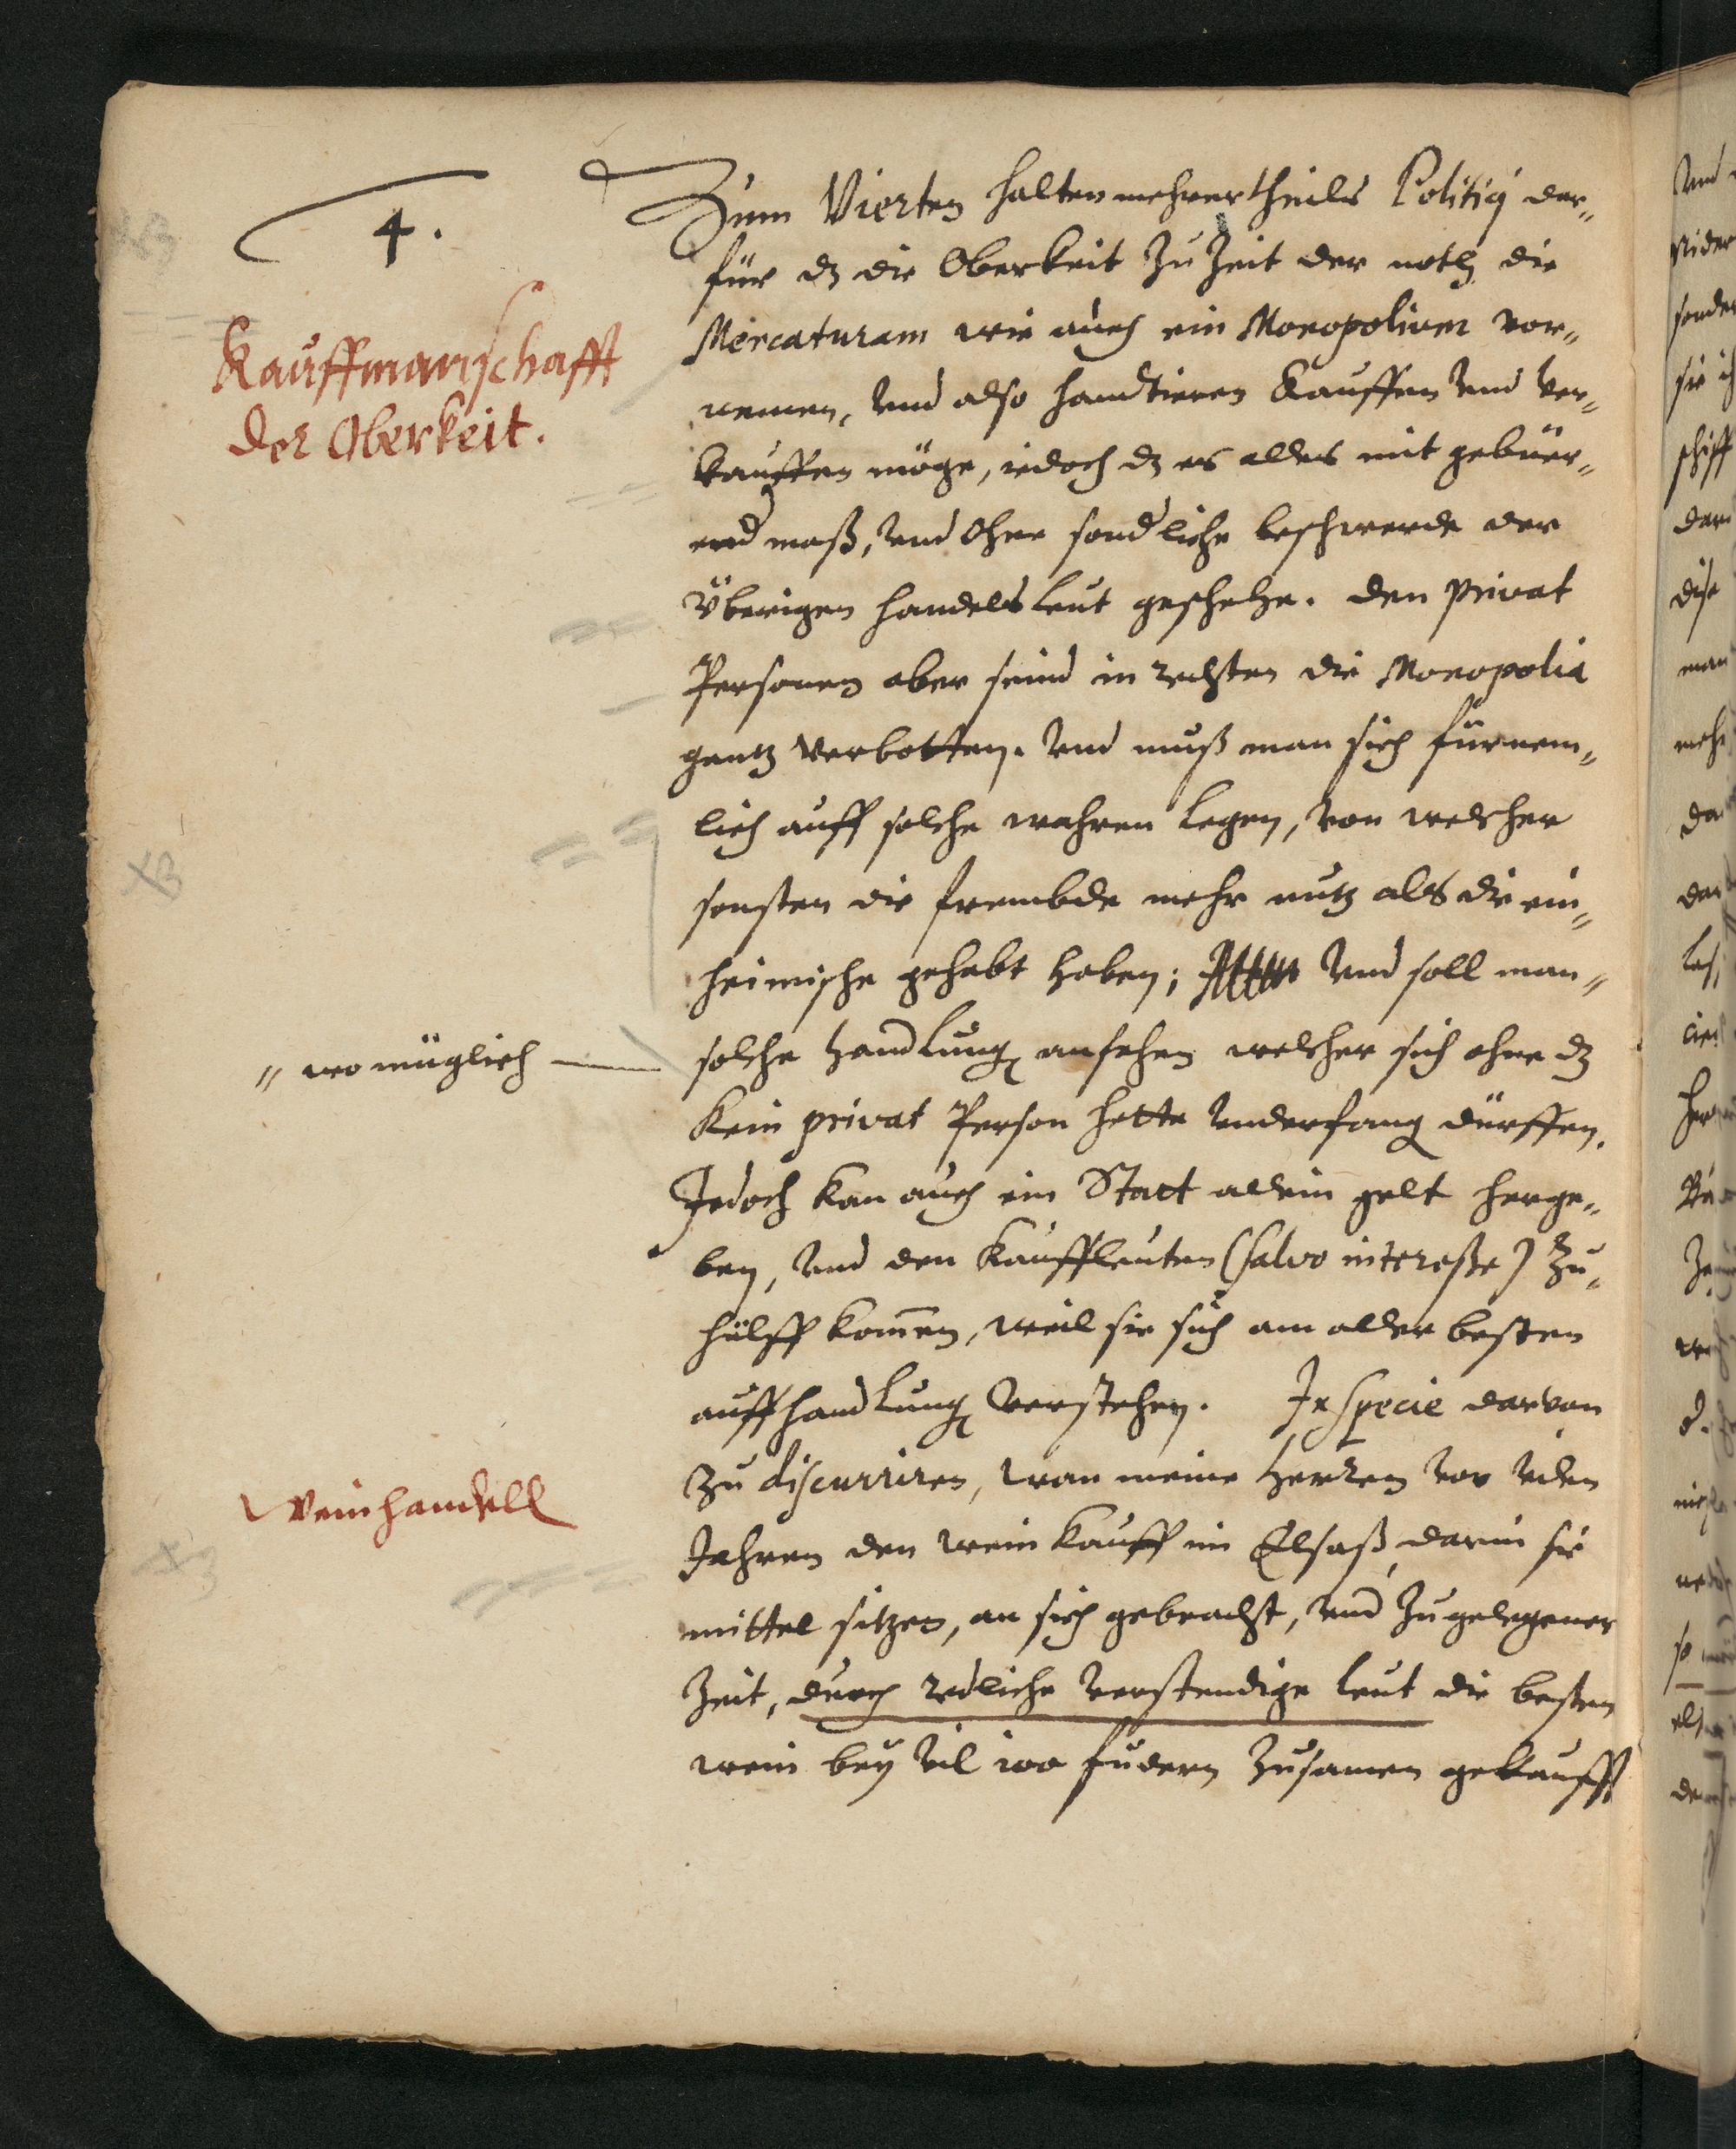 4.
Kauffmanschafft
der Oberkeit.
Zum Vierten halten mehrertheils Politici dar„
für dz die Oberkeit zu Zeit der noth die
Mercaturam wie auch ein Monopolium vor„
nemen, vnd also handtieren Kauffen vnd ver„
kauffen möge, iedoch dz es alles mit gebüer„
end maß, vnd ohne sondliche beschwerde der
Vberigen handelsleut geschehe. den privat
Personen aber seind in rechten die Monopolia
gantz verbotten. vnd muß man sich fürnem„
lich auff solche wahren legen, von welcher
sonsten die frembde mehr nutz als die ein„
heimische gehabt haben; vnd soll man„
„ wo müglich
solche Handlung ansehen welcher sich ohne dz
Kein privat Person hette vnderfang dürffen.
Jedoch kan auch ein Statt allein gelt herge„
ben, vnd den Kauffleuten (salvo interesse) zu„
hülff komen, weil sie sich am aller besten
auff handlung verstehen. In specie darvon
Weinhandell
zu discurriren, wan meine Herren vor vilen
Jahren den wein kauff im Elsaß, darin sie
mittel sitzen, an sich gebracht, vnd zu gelegener
Zeit, durch redliche verstendige leut die besten
wein bey vil 100 fudern zusamen gekaufft